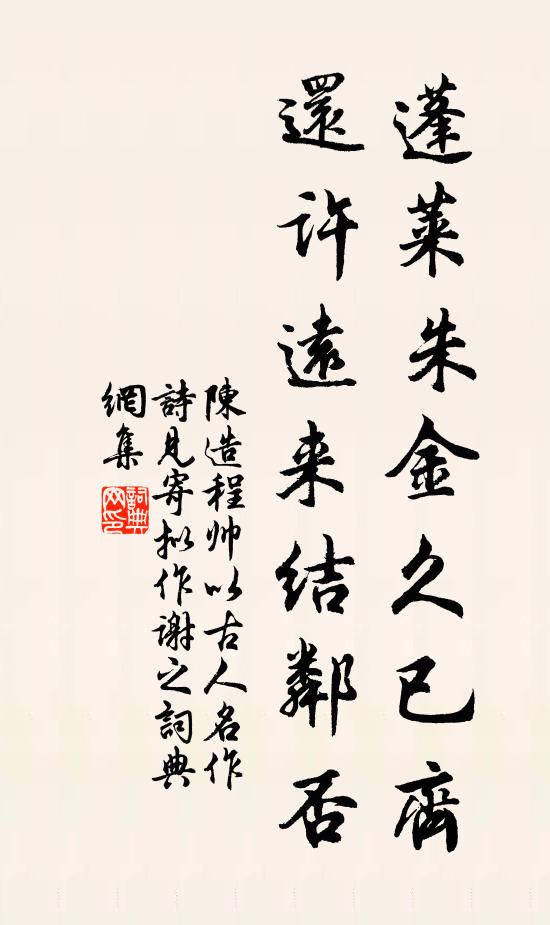 蓬萊朱金久已齊
還許遠来結鄰否
陳造程帅以古人名作
詩見寄拟作谢之詞典
網集
詞典網印